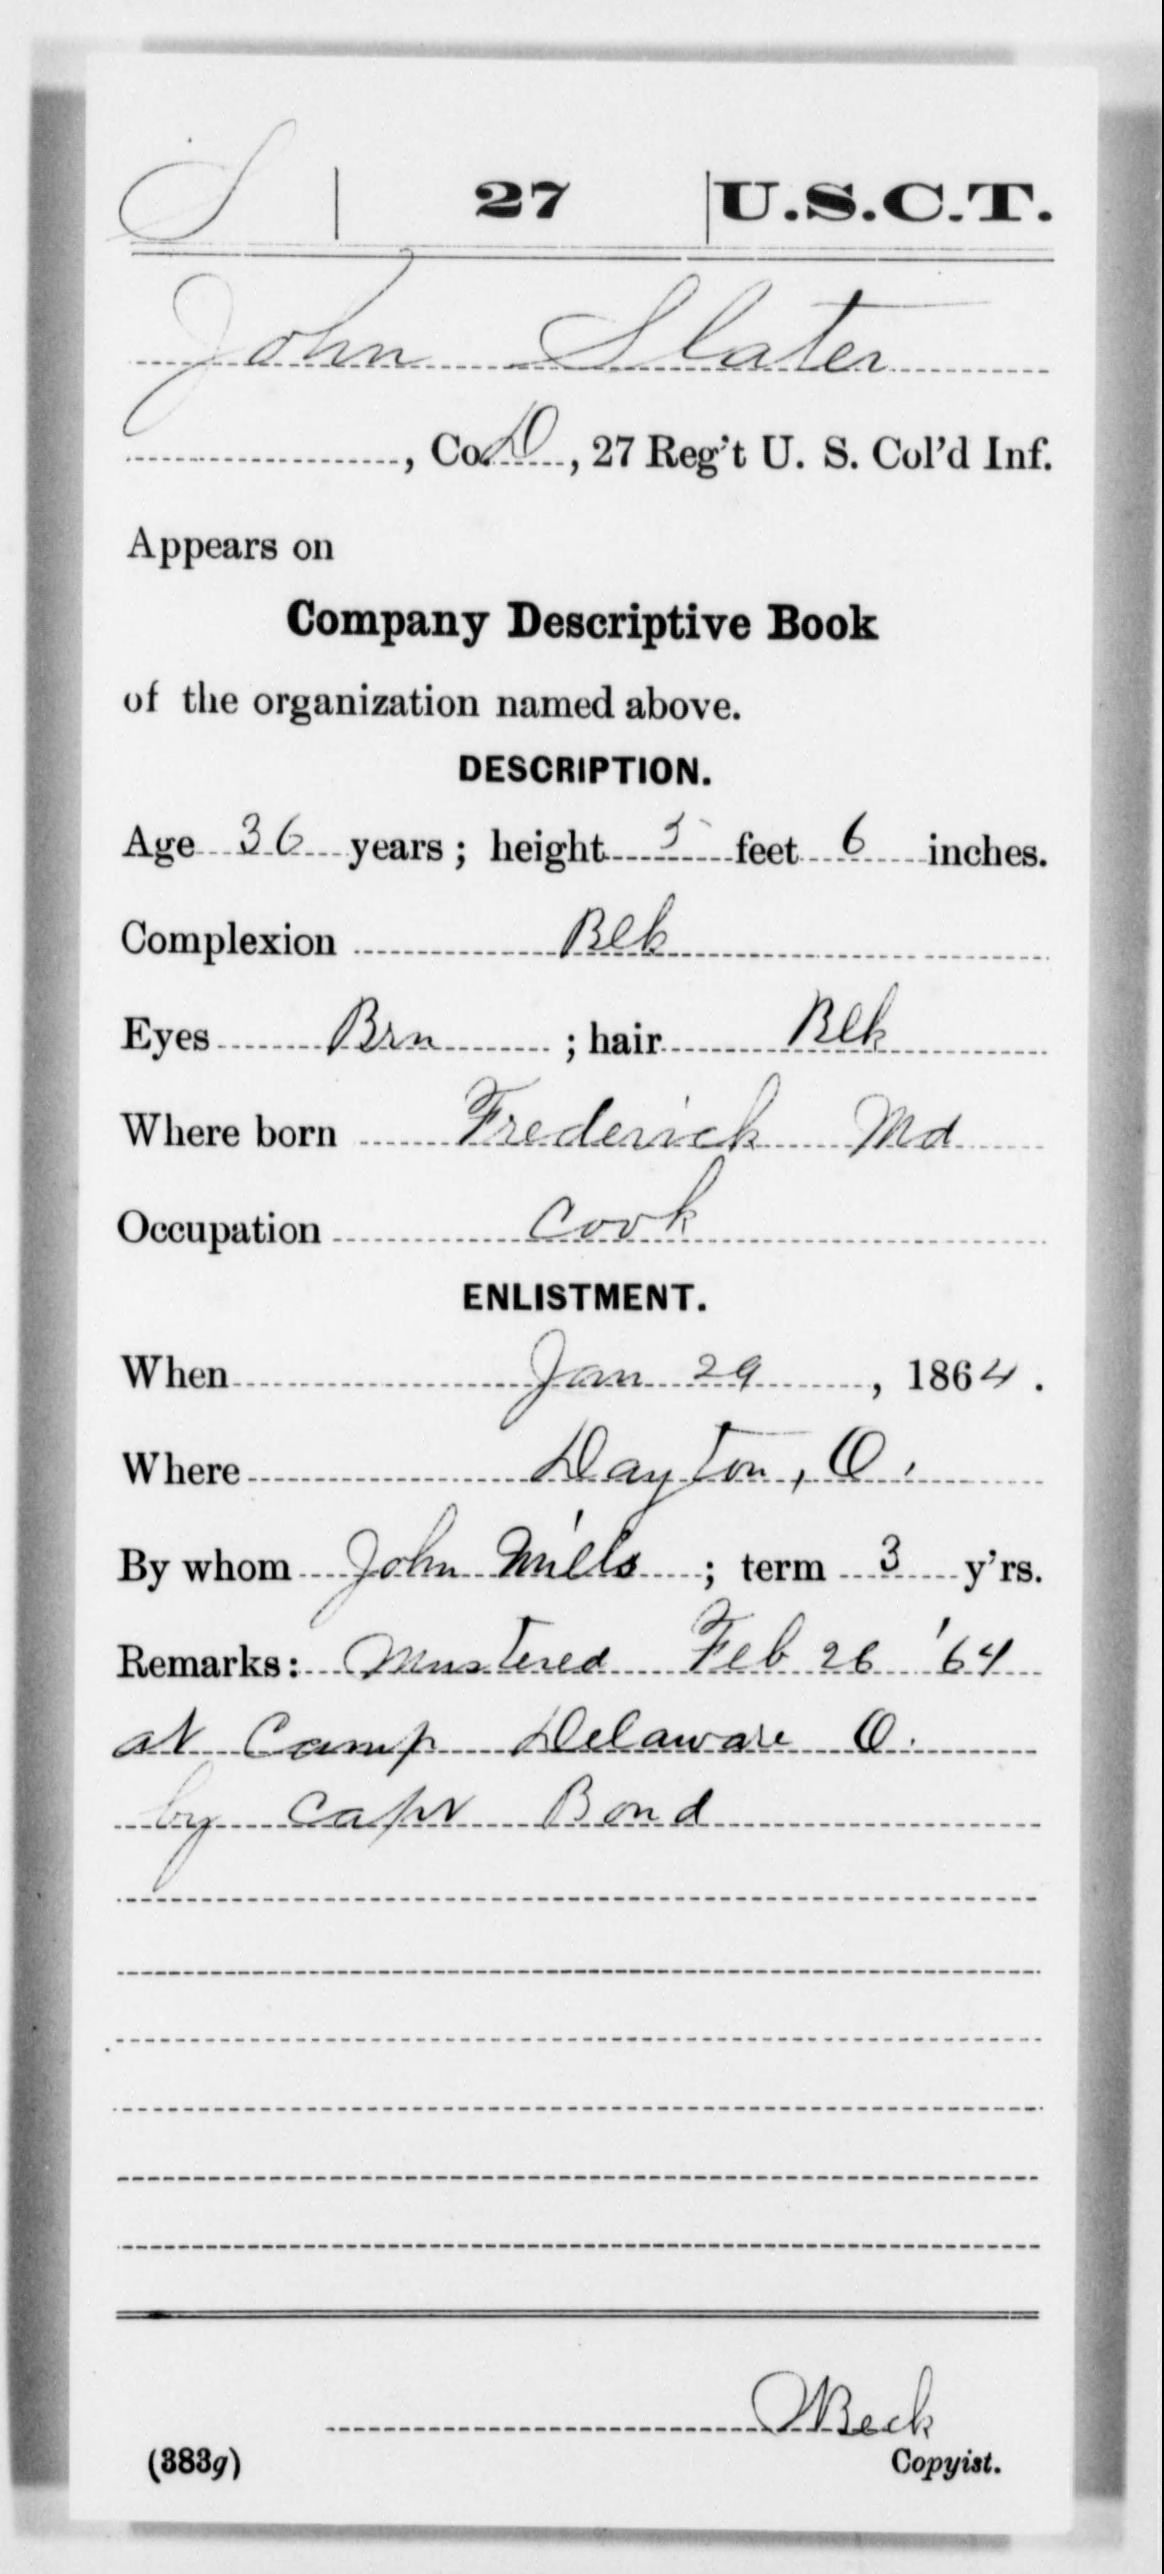 S | 27 | U.S.C.T.
John Slater
, Co. D, 27 Reg't U. S. Col'd Inf.
Appears on
Company Descriptive Book
of the organization named above.
DESCRIPTION.
Age 36 years; height 5 feet 6 inches.
Complexion Blk
Eyes Brn ; hair Blk
Where born Frederick Md
Occupation Cook
ENLISTMENT.
When Jan 29, 1864.
Where Dayton, O.
By whom John Mills ; term 3 y'rs.
Remarks: Mustered Feb 26 '64
at Camp Delaware O.
by Capt Bond
Beck
(383g) Copyist.